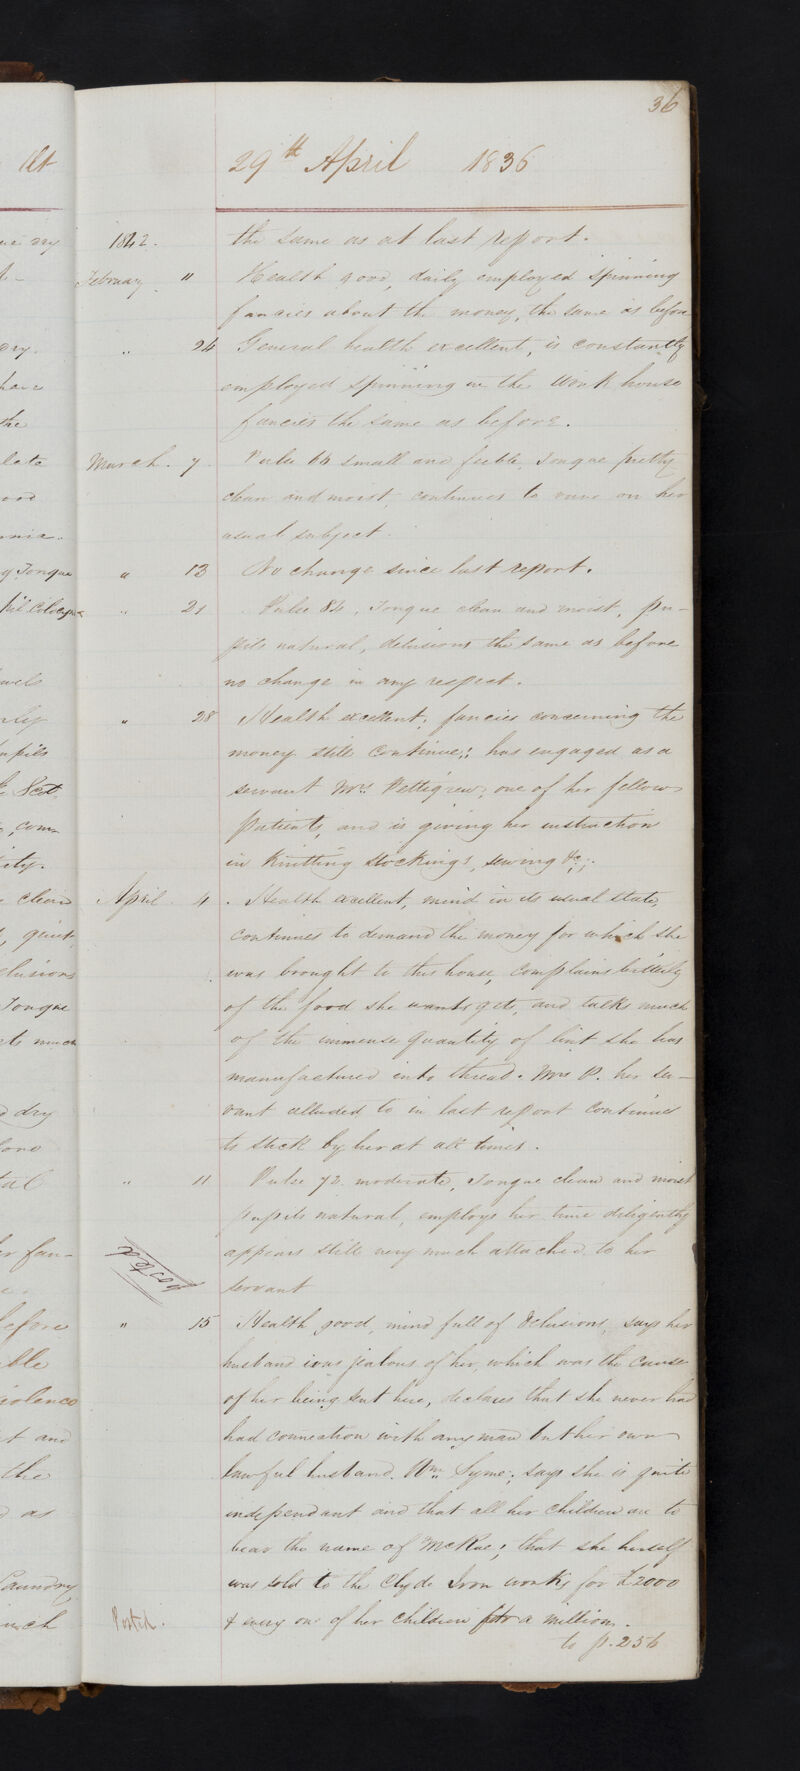 36
29th April 1836
1842. the same as at last report.
February " Health good, daily employed spinning
fancies about the money, the same as before
" 24 General health excellent, is constantly
employed spinning in the Work house
fancies the same as before.
March. 7. Pulse 64 small and feeble, Tongue pretty
clean and moist, continues to rave on her
usual subject.
" 13 No change since last report.
" 21 Pulse 84, Tongue clean and moist, pu-
pils natural, delusions the same as before
no change in any respect.
" 28 Health excellent; fancies concerning the
money still continue; has engaged as a
servant Mrs. Pettigrew, one of her fellow
patients, and is giving her instruction
in Knitting stockings, sewing &c;
April 4. Health excellent, mind in its usual state,
continues to demand the money for which she
was brought to this house, complains bitterly
of the food she wants gets, and talks much
of the immense quantity of lint she has
manufactured into thread. Mrs P. her ser-
vant alluded to in last report continues
to stick by her at all times.
" 11 Pulse 72. moderate, Tongue clean and moist
pupils natural, employs her time diligently
appears still very much attached to her
posted
servant
" 15 Health good, mind full of Delusions, says her
husband was jealous of her, which was the cause
of her being sent here, declares that she never had
had connection with any man but her own
lawful husband. Wm. Syme; says she is quite
independant and that all her children are to
bear the name of McRae; that she herself
was sold to the Clyde Iron works for £2000
Posted. & every one of her children for a million.
to p. 256